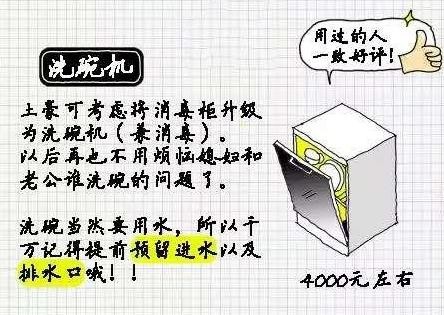 洗碗机
用过的人
一致好评!
土豪可考虑将消毒柜升级
为洗碗机（兼消毒）。
以后再也不用烦恼媳妇和
老公谁洗碗的问题了。
洗碗当然要用水，所以千
万记得提前预留进水以及
排水口哦！！
4000元左右